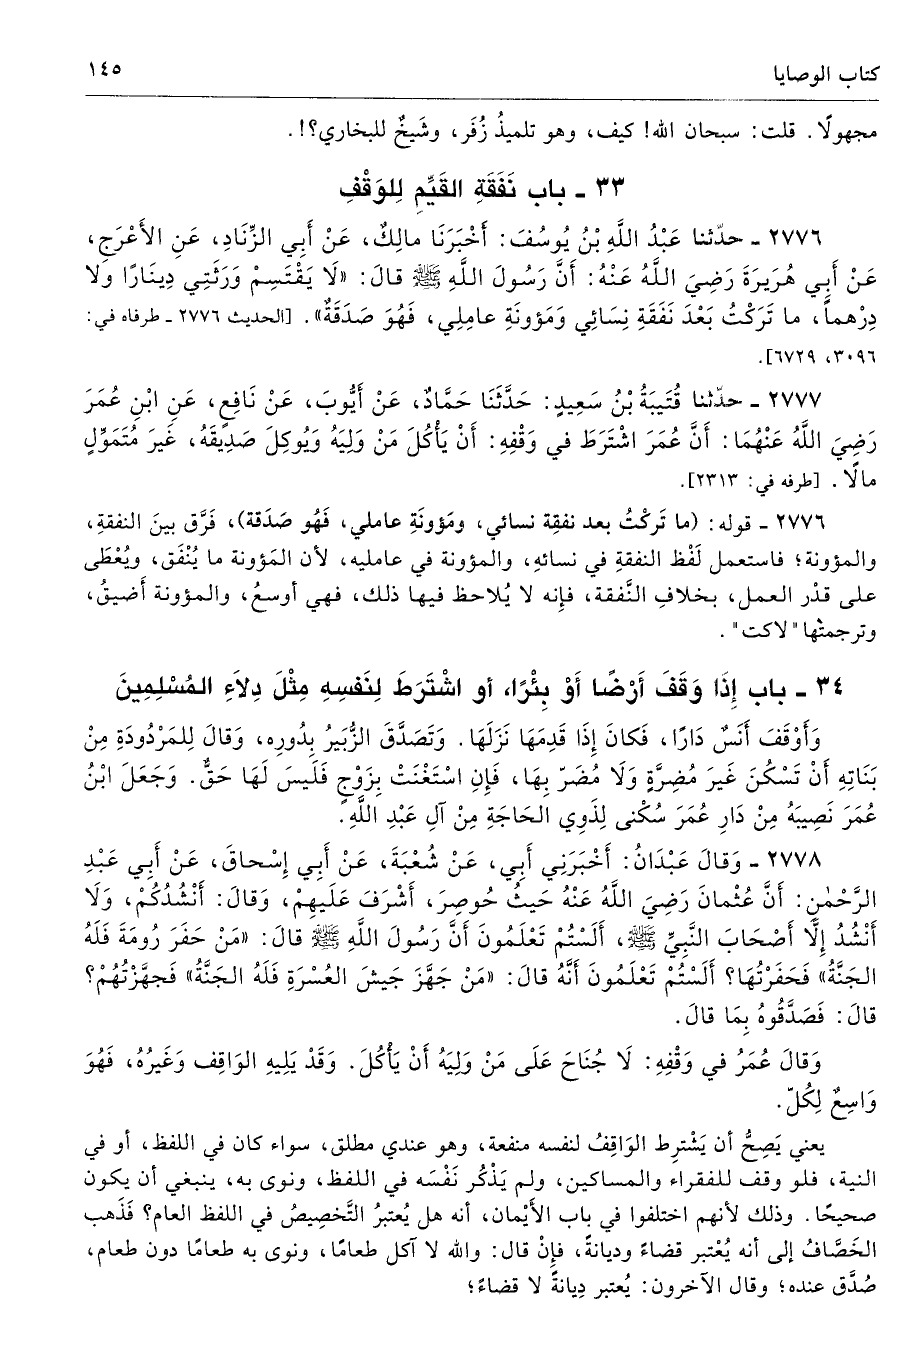 كتاب الوصايا ١٤٥
مجهولًا. قلت: سبحان الله! كيف، وهو تلميذُ زُفَر، وشَيخٌ للبخاري؟!.
٣٣ - باب نَفَقَةِ القَيِّمِ لِلوَقْفِ
٢٧٧٦ - حدّثنا عَبْدُ اللَّهِ بْنُ يُوسُفَ: أَخْبَرَنَا مالِكٌ، عَنْ أَبِي الزِّنَادِ، عَنِ الأَعْرَجِ،
عَنْ أَبِي هُرَيرَةَ رَضِيَ اللَّهُ عَنْهُ: أَنَّ رَسُولَ اللَّهِ ﷺ قالَ: «لَا يَقْتَسِمْ وَرَثَتِي دِينَارًا ولا
دِرْهماً، ما تَرَكْتُ بَعْدَ نَفَقَةِ نِسَائِي وَمَؤونَةِ عامِلِي، فَهُوَ صَدَقَةٌ». [الحديث ٢٧٧٦ - طرفاه في:
٣٠٩٦، ٦٧٢٩].
٢٧٧٧ - حدّثنا قُتَيبَةُ بْنُ سَعِيدٍ: حَدَّثَنَا حَمَّادٌ، عَنْ أَيُّوبَ، عَنْ نَافِعٍ، عَنِ ابْنِ عُمَرَ
رَضِيَ اللَّهُ عَنْهُمَا: أَنَّ عُمَرَ اشْتَرَطَ في وَقْفِهِ: أَنْ يَأْكُلَ مَنْ وَلِيَهُ وَيُوكِلَ صَدِيقَهُ، غَيرَ مُتَمَوِّلٍ
مالًا. [طرفه في: ٢٣١٣].
٢٧٧٦ - قوله: (ما تَركْتُ بعد نفقِة نسائي، ومَؤونَةِ عاملي، فَهُو صَدَقة)، فَرَّق بينَ النفقةِ،
والمؤونة؛ فاستعمل لَفْظ النفقةِ في نسائهِ، والمؤونة في عامليه، لأن المَؤونة ما يُنْفَق، ويُعْطَى
على قدْر العمل، بخلافِ النَّفقة، فإِنه لا يُلاحظ فيها ذلك، فهي أوسعُ، والمؤونة أضيقُ،
وترجمتُها "لاكت".
٣٤ - باب إِذَا وَقَفَ أَرْضًا أَوْ بِئْرًا، أو اشْتَرَطَ لِنَفسِهِ مِثْلَ دِلاَءِ المُسْلِمِينَ
وَأَوْقَفَ أَنَسٌ دَارًا، فَكانَ إِذَا قَدِمَهَا نَزَلَهَا. وَتَصَدَّقَ الزُّبَيرُ بِدُورِهِ، وَقالَ لِلمَرْدُودَةِ مِنْ
بَنَاتِهِ أَنْ تَسْكُنَ غَيرَ مُضِرَّةٍ وَلَا مُضَرّ بِهَا، فَإِنِ اسْتَغْنَتْ بِزَوْجٍ فَلَيسَ لَهَا حَقٌّ. وَجَعَلَ ابْنُ
عُمَرَ نَصِيبَهُ مِنْ دَارِ عُمَرَ سُكْنى لِذَوِي الحَاجَةِ مِنْ آلِ عَبْدِ اللَّهِ.
٢٧٧٨ - وَقالَ عَبْدَانُ: أَخْبَرَنِي أَبِي، عَنْ شُعْبَةَ، عَنْ أَبِي إِسْحاقَ، عَنْ أَبِي عَبْدِ
الرَّحْمٰنِ: أَنَّ عُثْمانَ رَضِيَ اللَّهُ عَنْهُ حَيثُ حُوصِرَ، أَشْرَفَ عَلَيهِمْ، وَقالَ: أَنْشُدُكُمْ، وَلَا
أَنْشُدُ إِلَّا أَصْحَابَ النَّبِيِّ ﷺ، أَلَسْتُمْ تَعْلَمُونَ أَنَّ رَسُولَ اللَّهِ ﷺ قالَ: «مَنْ حَفَرَ رُومَةَ فَلَهُ
الجَنَّةُ» فَحَفَرْتُهَا؟ أَلَسْتُمْ تَعْلَمُونَ أَنَّهُ قالَ: «مَنْ جَهَّزَ جَيشَ العُسْرَةِ فَلَهُ الجَنَّةُ» فَجهَّزْتُهُمْ؟
قالَ: فَصَدَّقُوهُ بِمَا قالَ.
وَقالَ عُمَرُ في وَقْفِهِ: لَا جُنَاحَ عَلَى مَنْ وَلِيَهُ أَنْ يَأْكُلَ. وَقَدْ يَلِيهِ الوَاقِف وَغَيرُهُ، فَهُوَ
وَاسِعٌ لِكُلّ.
يعني يَصِحُّ أن يَشْترِط الوَاقِفُ لنفسه منفعة، وهو عندي مطلق، سواء كان في اللفظ، أو في
النية، فلو وقف للفقراء والمساكين، ولم يَذْكُر نَفْسَه في اللفظ، ونوى به، ينبغي أن يكون
صحيحًا. وذلك لأنهم اختلفوا في باب الأَيْمان، أنه هل يُعتبرُ التَّخصِيصُ في اللفظ العام؟ فَذَهب
الخَصَّافُ إلى أنه يُعْتبر قضاءً وديانةً، فإِنْ قال: والله لا آكل طعامًا، ونوى به طعامًا دون طعام،
صُدَّق عنده؛ وقال الآخرون: يُعتبر دِيانةً لا قضاءً؛